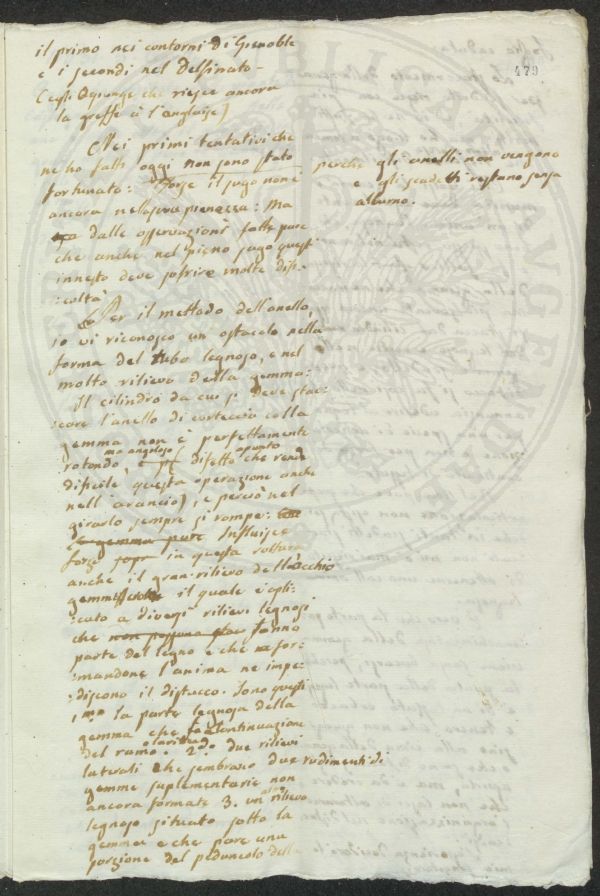 479
il primo nei contorni di Grenoble
e i secondi nel Delfinato -
(egli aggiunge che riesce ancora
la greffe à l'anglaise)
Nei primi tentativi che
ne ho fatti oggi non sono stato
fortunato: Forse il sugo non è
ancora nella sua pienezza: Ma
dalle osservazioni fatte pare
che anche nel pieno sugo quest'
innesto deve soffrire molte diffi-
:coltà
perchè gli anelli non vengono
e gli scudetti restano senza
alburno.
Per il metodo dell'anello,
io vi riconosco un ostacolo nella
forma del tubo legnoso, e nel
molto rilievo della gemma:
Il cilindro da cui si deve stac-
:care l'anello di corteccia colla
gemma non è perfettamente
rotondo, ma angoloso (difetto appunto che rende
difficile questa operazione anche
nell'arancio), e perciò nel
girarlo sempre si rompe:
e gemma pure Influisce
forse in questa rottura
anche il gran rilievo dell'occhio
gemma il quale è appli-
:cato a diversi rilievi legnosi
che non possono star fanno
parte del legno e che ne for-
:mandone l'anima ne impe-
:discono il distacco. Sono questi
1.mo la parte legnosa della
gemma che fa continuazione
del ramo. 2.do due rilievi
laterali che sembrano due rudimenti di
gemme suplementarie non
ancora formate 3. un altro rilievo
legnoso situato sotto la
gemma e che pare una
porzione del peduncolo della